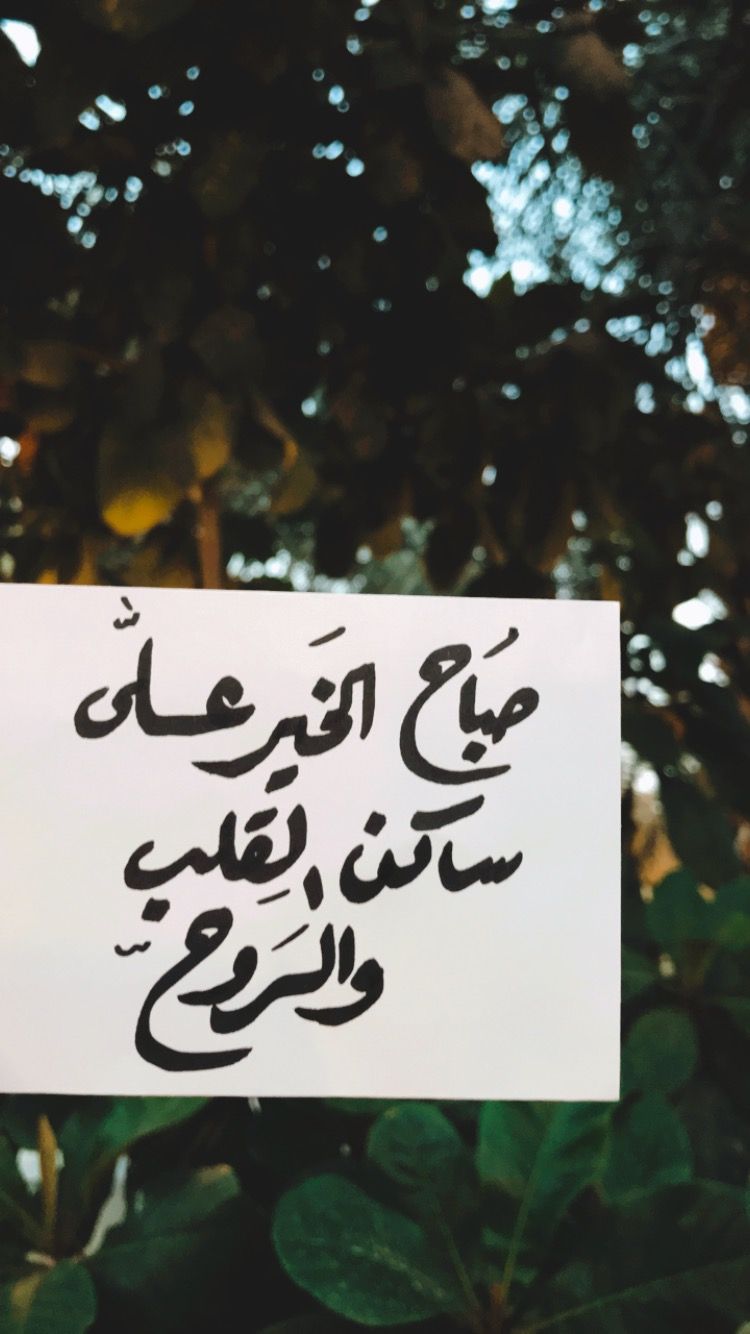 صَباح الخَير عـلى
ساكن القَلب
والرَوح